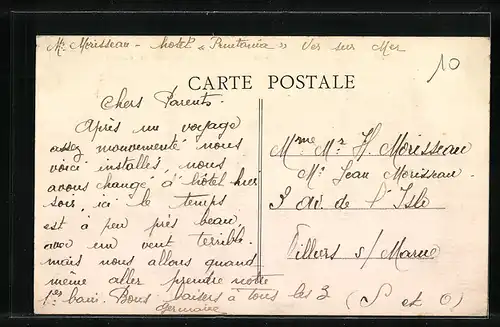 Mr Morisseau - hotel « Primtania » Ver sur Mer
10
CARTE POSTALE
Chers Parents.
Après un voyage
assez mouvementé nous
voici installés, nous
avons changé d'hôtel hier
soir, ici le temps
est à peu près beau
avec un vent terrible.
mais nous allons quand
même aller prendre notre
1er bain. Bons baisers à tous les 3
Germaine
Mme Mr H. Morisseau
Mr Jean Morisseau
3 av. de l'Isle
Villiers s/Marne
(S et O)